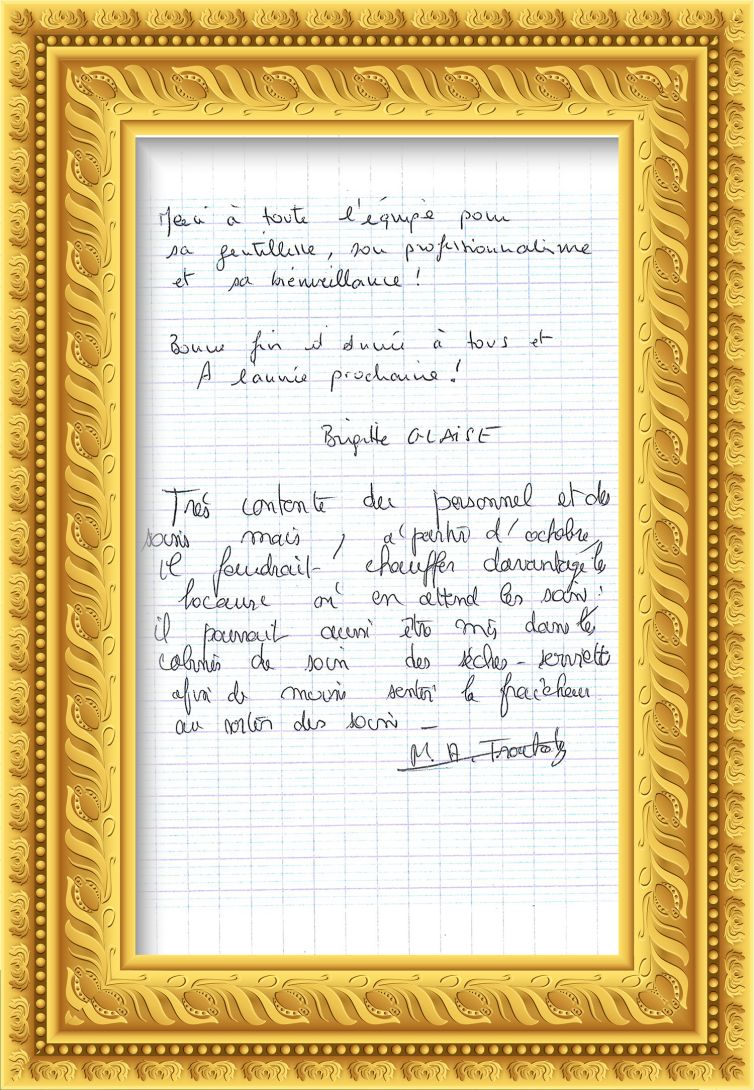 Merci à toute l'équipe pour
sa gentillesse, son professionnalisme
et sa bienveillance !
Bonne fin d'année à tous et
A l'année prochaine !
Brigitte GLAISE
Très contente du personnel et des
soins mais, à partir d'octobre,
il faudrait chauffer davantage le
locaux où en attend les soins :
il pourrait aussi être mis dans les
cabines de soin des sèches-serviette
afin de moins sentir la fraîcheur
au sortir des soins -
M. A.